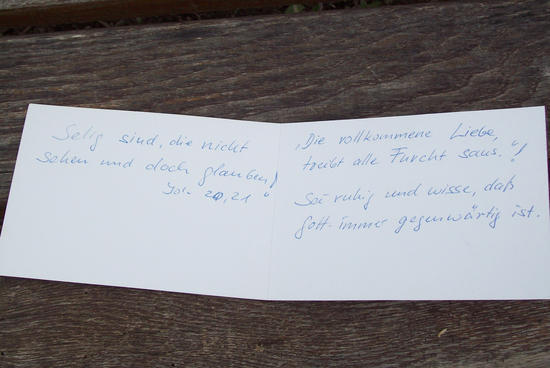 Selig sind, die nicht
sehen und doch glauben!
Joh 20,21"
„Die vollkommene Liebe,
treibt alle Furcht saus."!
Sei ruhig und wisse, daß
Gott immer gegenwärtig ist.